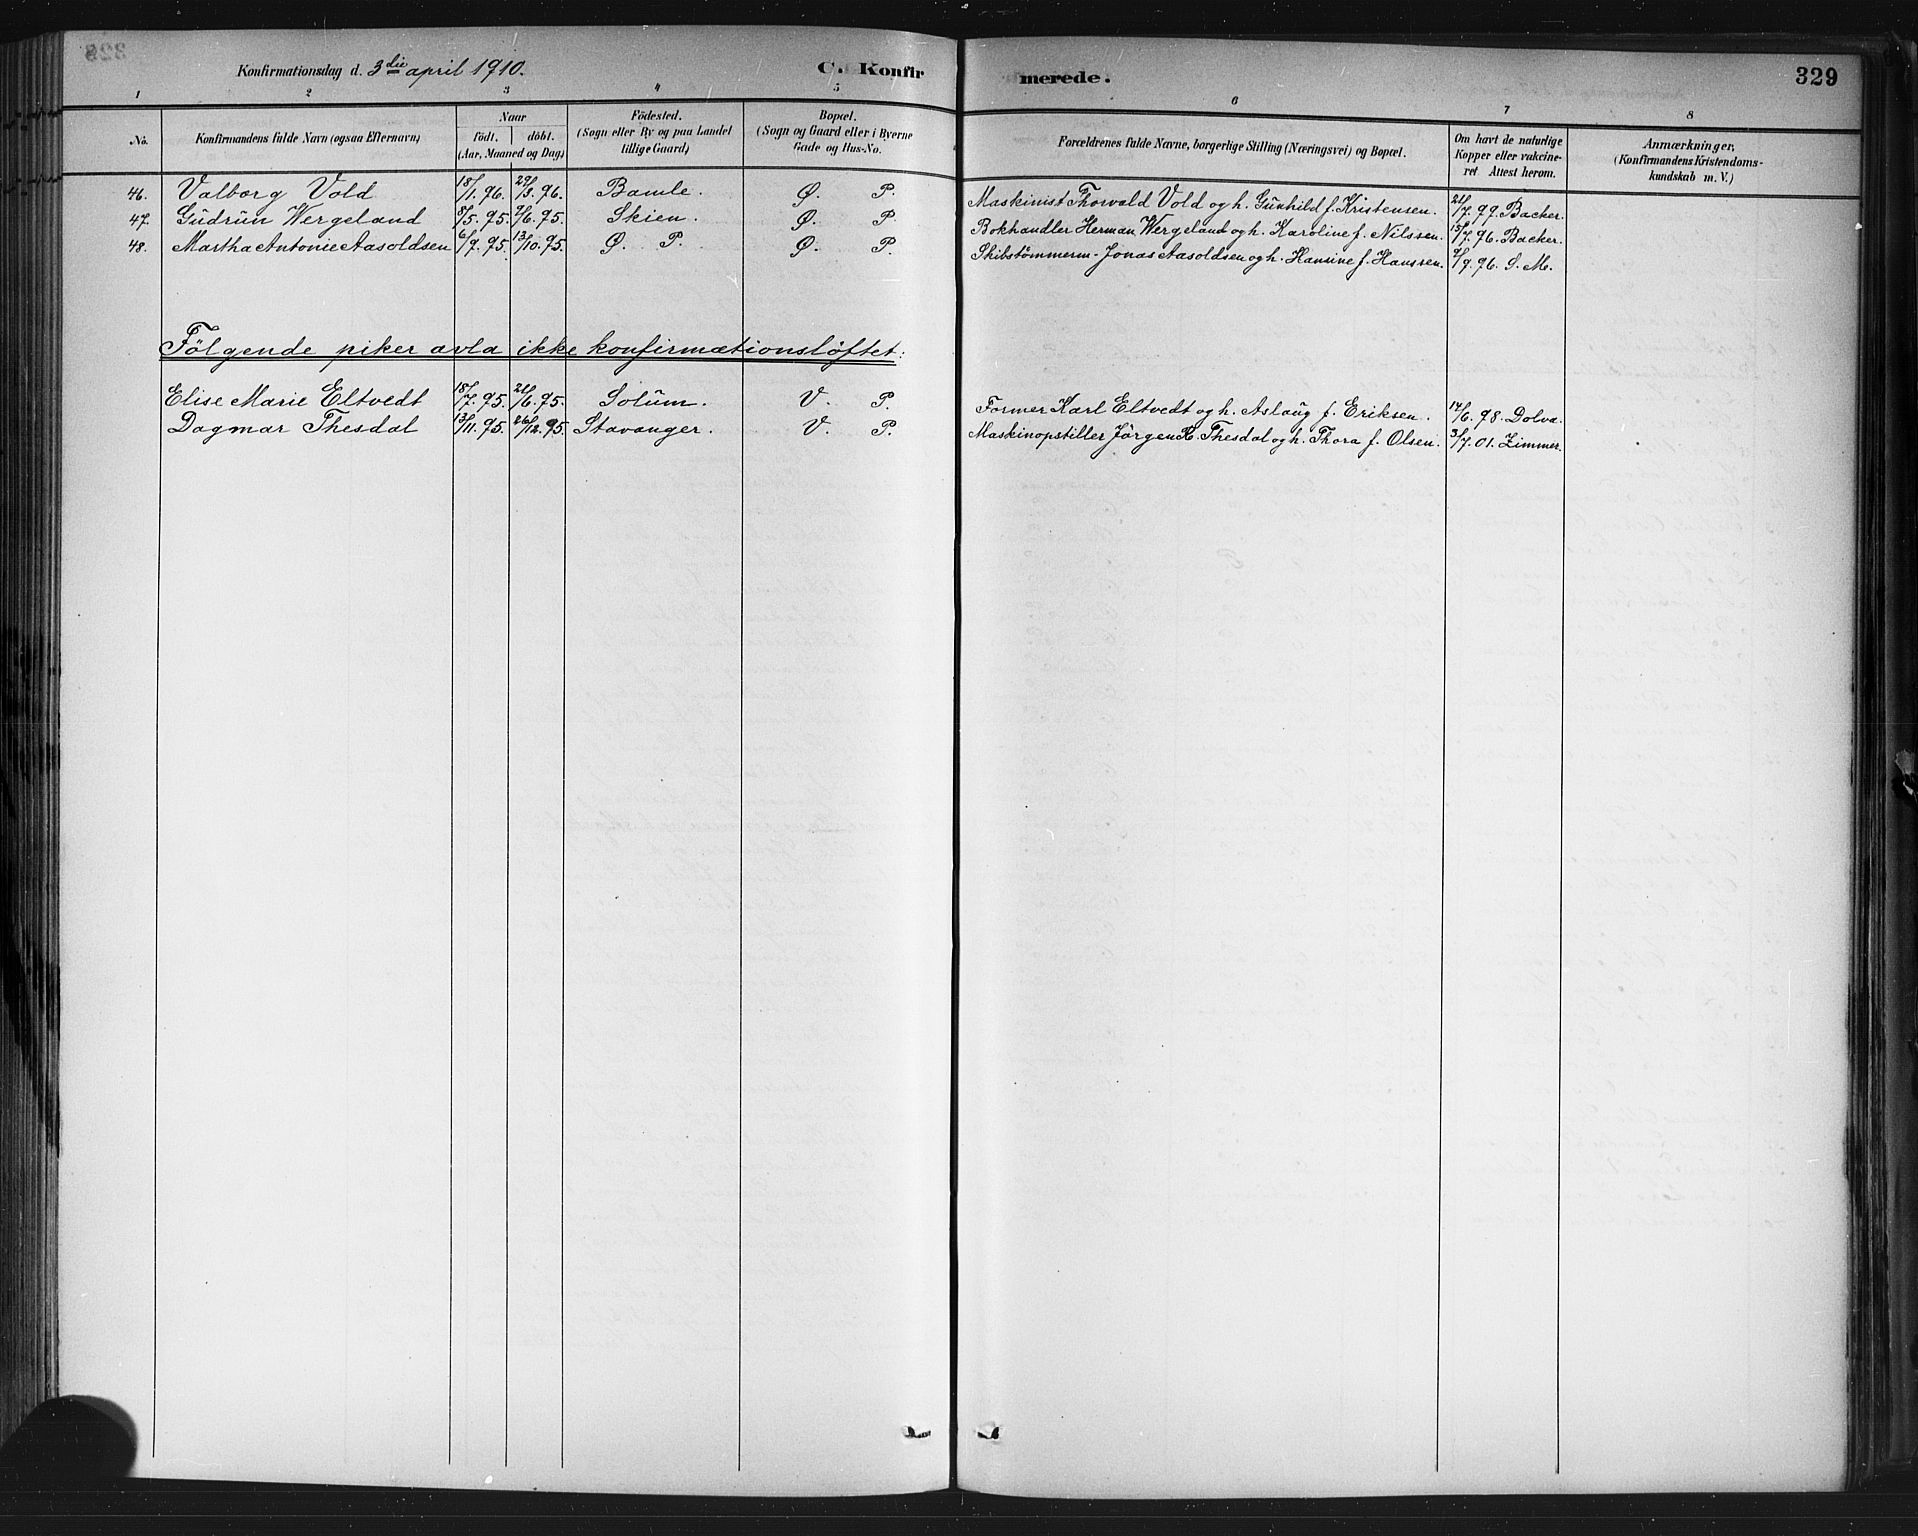 Konfirmationsdag d. 3die april 1910.
C. Konfirmerede.
329
1 2 3 4 5 6 7 8
No.
Konfirmandens fulde Navn (ogsaa Efternavn)
Naar
født. døbt.
(Aar, Maaned og Dag)
Födested.
(Sogn eller By og paa Landet
tillige Gaard)
Bopæl.
(Sogn og Gaard eller i Byerne
Gade og Hus-No.
Forældrenes fulde Navne, borgerlige Stilling (Næringsvei) og Bopæl.
Om havt de naturlige
Kopper eller vakcine-
ret Attest herom.
Anmærkninger,
(Konfirmandens Kristendoms-
kundskab m. V.)
46. Valborg Vold 18/1. 96. 29/3. 96. Bamle. Ø. P. Maskinist Thorvald Vold og h. Gunhild f. Kristensen. 21/7. 99. Backer.
47. Gudrun Wergeland 8/5. 95. 9/6. 95. Skien. Ø. P. Bokhandler Herman Wergeland og h. Karoline f. Nilssen. 15/7. 96. Backer.
48. Martha Antonie Aasoldsen 6/9. 95. 13/10. 95. Ø. P. Ø. P. Skibstømmerm- Jonas Aasoldsen og h. Hansine f. Hanssen. 9/9. 96. S. M.
Følgende piker avla ikke konfirmationsløftet:
Elise Marie Eltvedt 18/7. 95. 21/6. 95. Solum. V. P. Former Karl Eltvedt og h. Aslaug f. Eriksen. 14/6. 98. Dolva.
Dagmar Thesdal 13/11. 95. 26/12. 95. Stavanger. V. P. Maskinopstiller Jørgen R. Thesdal og h. Thora f. Olsen. 3/7. 01. Zimmer.